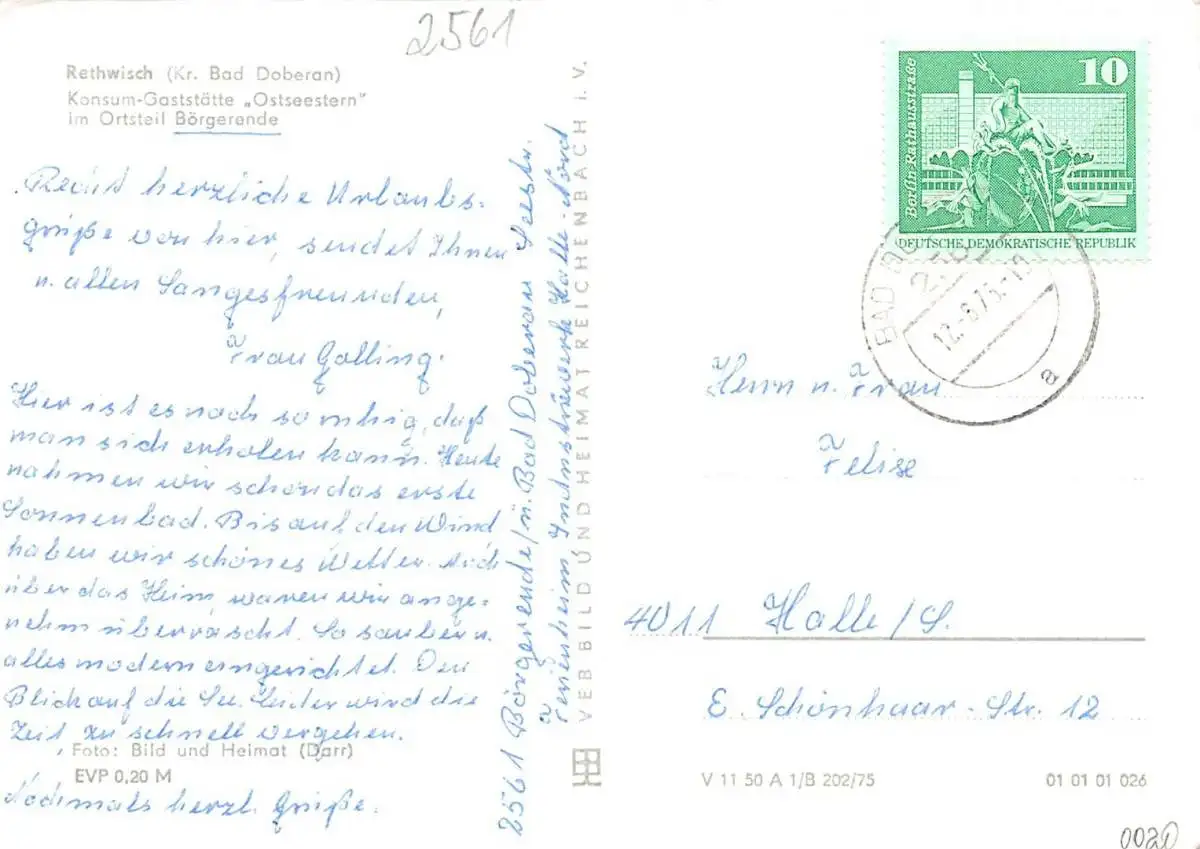 2561
Rethwisch (Kr. Bad Doberan)
Konsum-Gaststätte „Ostseestern"
im Ortsteil Börgerende
Recht herzliche Urlaubs-
grüße von hier, sendet Ihnen
u. allen Sangesfreunden,
Frau Golling.
Hier ist es noch so ruhig, daß
man sich erholen kann. Heute
nahmen wir schon das erste
Sonnenbad. Bis auf den Wind
haben wir schönes Wetter. Auch
über das Heim, waren wir ange-
nehm überrascht. So sauber u.
alles modern eingerichtet. Den
Blick auf die See. Leider wird die
Zeit zu schnell vergehen.
Foto: Bild und Heimat (Darr)
EVP 0,20 M
Nochmals herzl. Grüße.
2561 Börgerende/ü. Bad Doberan Seestr.
Ferienheim, Industriewerk Halle-Nord
VEB BILD UND HEIMAT REICHENBACH I. V.
10
Berlin-Rathausstraße
DEUTSCHE DEMOKRATISCHE REPUBLIK
BAD DO
256
12.-6.75.-19
a
Herrn u. Frau
Felise
4011 Halle/S.
E. Schönhaar-Str. 12
V 11 50 A 1/B 202/75
01 01 01 026
0020